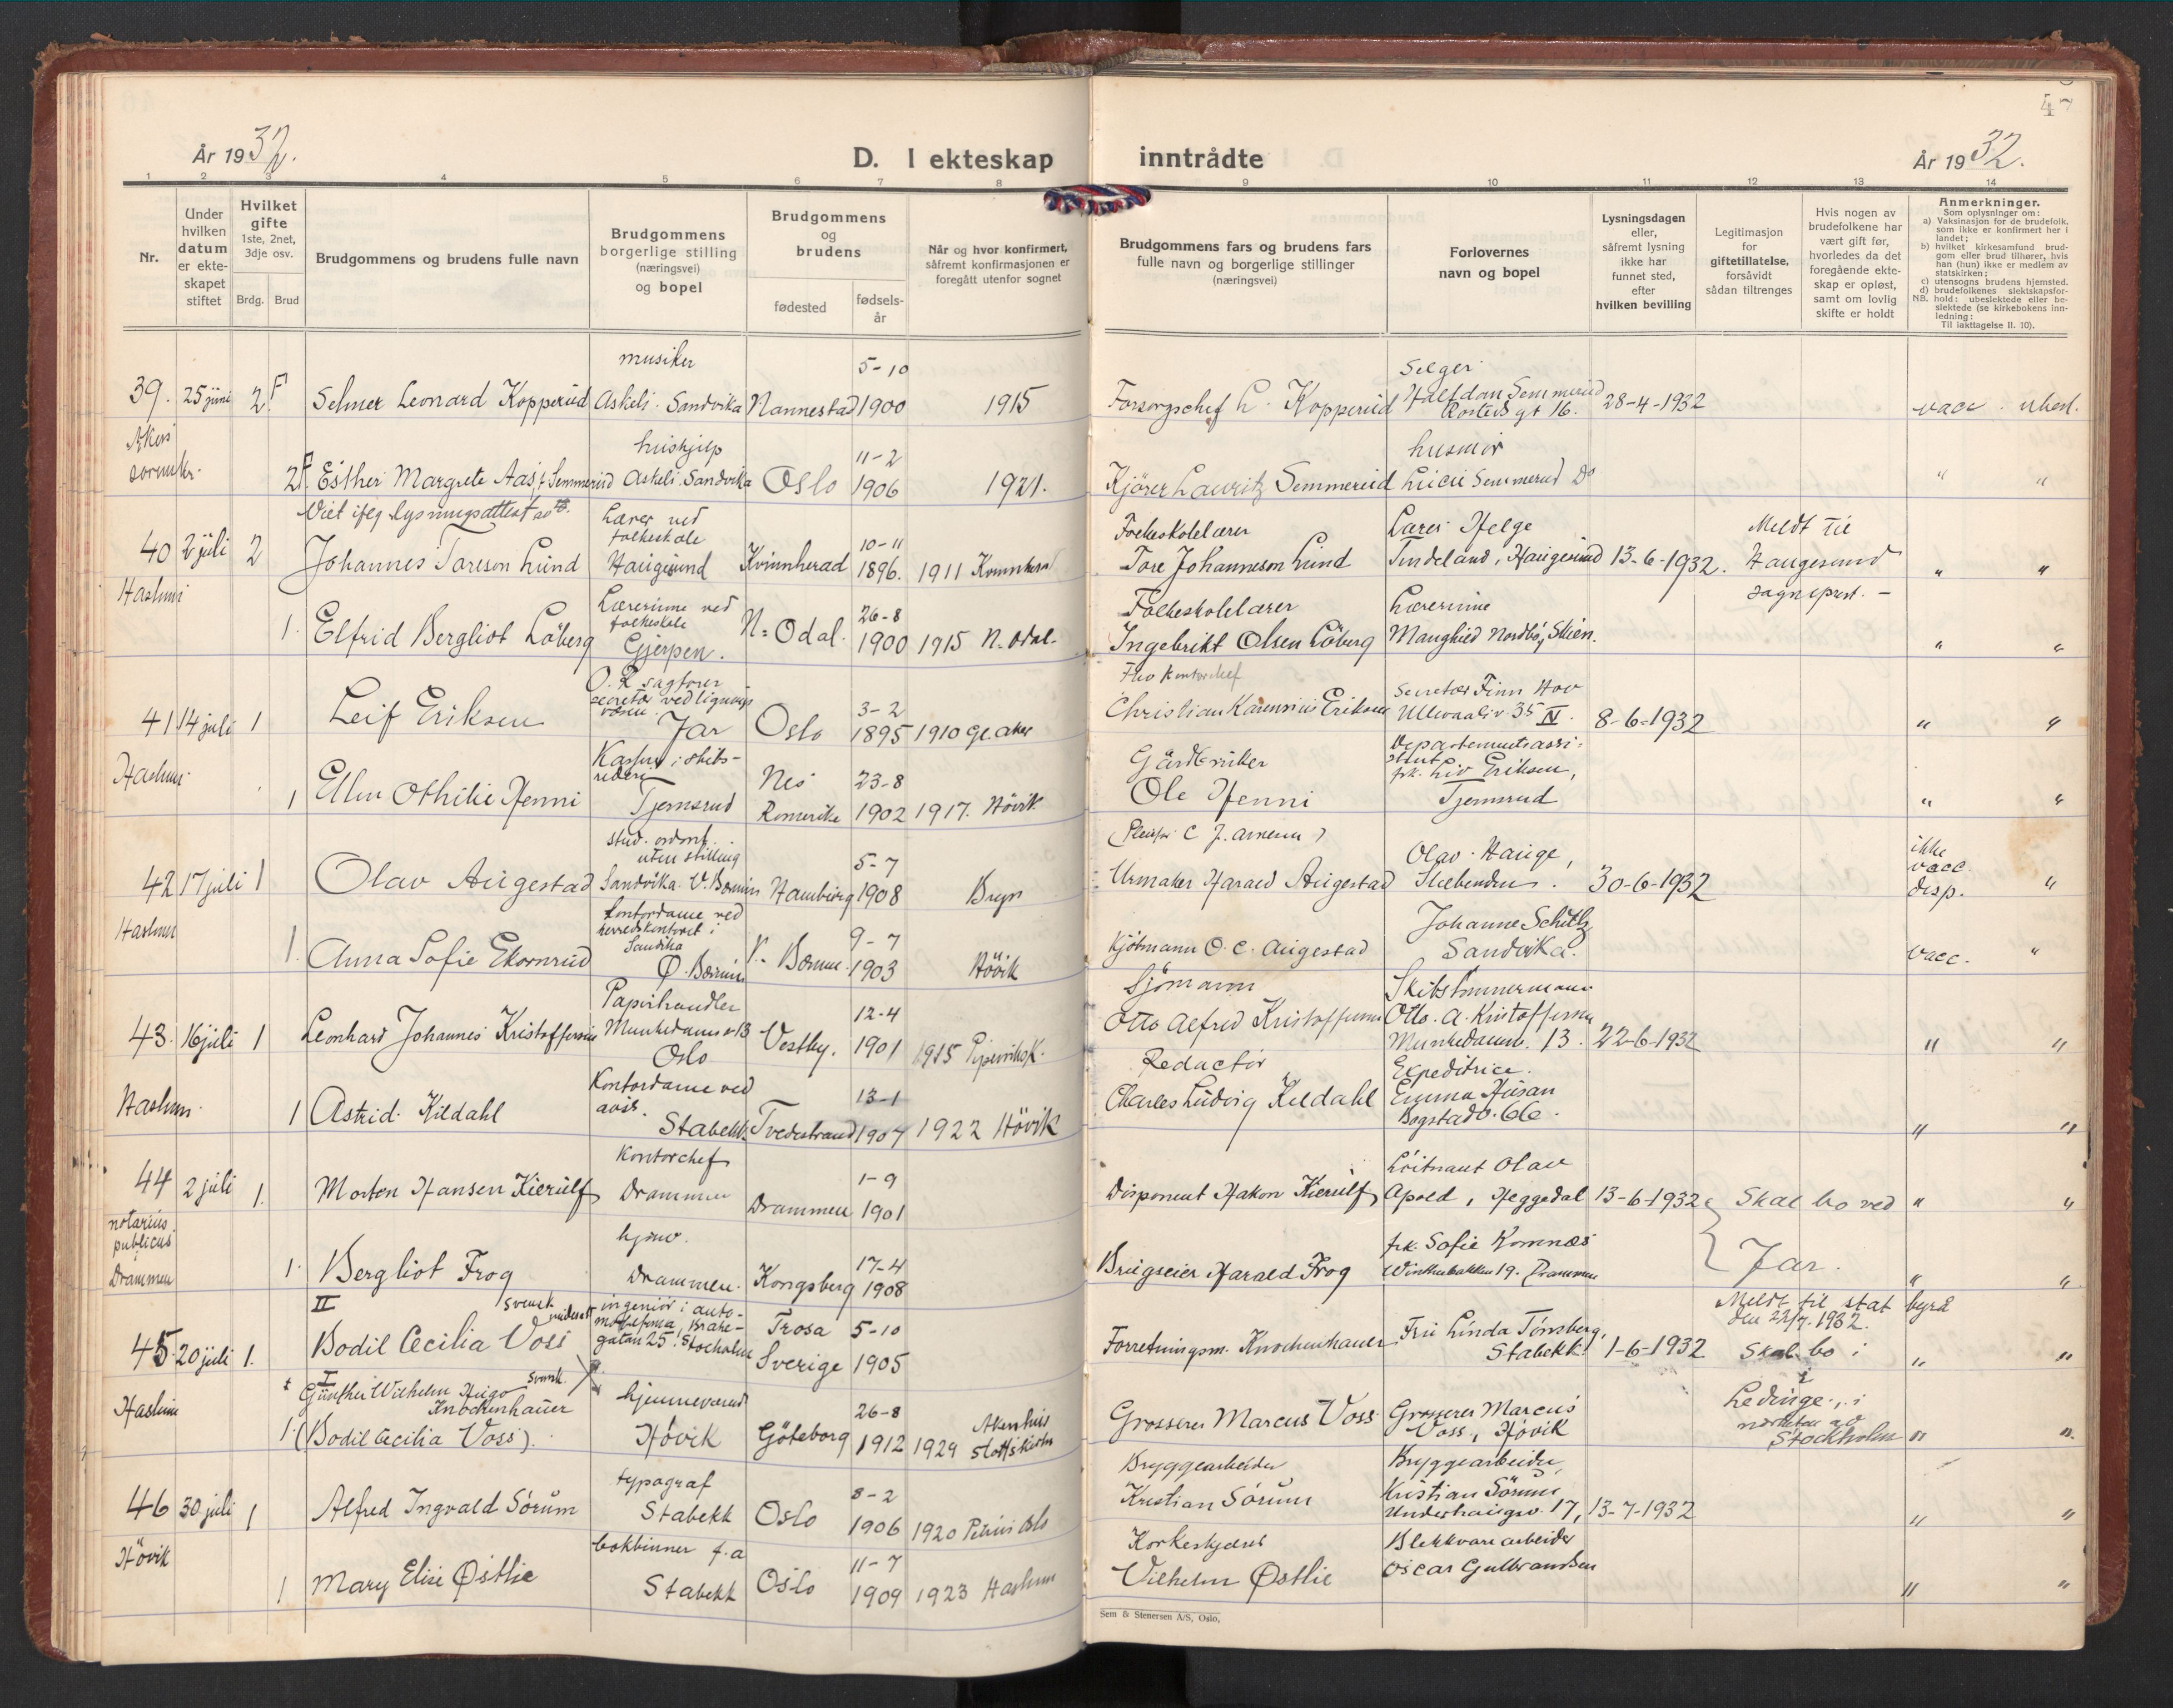 47
År 1932.
D. I ekteskap
inntrådte
År 1932.
1 2 3 4 5 6 7 8 9 10 11 12 13 14
Nr.
Under hvilken datum er ekte-skapet stiftet
Hvilket gifte 1ste, 2net, 3dje osv.
Brdg. Brud
Brudgommens og brudens fulle navn
Brudgommens borgerlige stilling (næringsvei) og bopel
Brudgommens og brudens
fødested
fødsels-år
Når og hvor konfirmert, såfremt konfirmasjonen er foregått utenfor sognet
Brudgommens fars og brudens fars fulle navn og borgerlige stillinger (næringsvei)
Forlovernes navn og bopel
Lysningsdagen eller, såfremt lysning ikke har funnet sted, efter hvilken bevilling
Legitimasjon for giftetillatelse, forsåvidt sådan tiltrenges
Hvis nogen av brudefolkene har vært gift før, hvorledes da det foregående ekte-skap er opløst, samt om lovlig skifte er holdt
Anmerkninger.
Som oplysninger om:
a) Vaksinasjon for de brudefolk. som ikke er konfirmert her i landet;
b) hvilket kirkesamfund brud-gom eller brud tilhører, hvis han (hun) ikke er medlem av statskirken;
c) utensogns brudens hjemsted.
d) brudefolkenes slektskapsfor-hold: ubeslektede eller be-slektede (se kirkebokens inn-ledning:
NB. Til iakttagelse II. 10).
musiker 5-10 Selger
39. 25 juni 2 F Selmer Leonard Kopperud Askeli. Sandvika Nannestad 1900 1915 Forsorgschef L. Kopperud Halfdan Semmerud gt 16. 28-4-1932 vacc. ubesl.
Akers sorenskr.
hushjelp 11-2 husmor
2 F. Esther Margrete Aas, f. Semmerud Askeli. Sandvika Oslo 1906 1921. Kjører Lauritz Semmerud Semmerud Do " "
Viet iflg lysningsattest
Lærer ved folkeskole 10-11 Folkeskolelærer Lærer Helge Meldt til
40 2 juli 2 Johannes Toreson Lund Haugesund Kvinnherad 1896. 1911 Kvinnherad Tore Johanneson Lund Tindeland, Haugesund 13-6-1932. Haugesund " "
Haslum sogneprest. -
Lærerinne ved folkeskole 26-8 Folkeskolelærer Lærerinne
1. Elfrid Bergliot Löberg Gjerpen. N. Odal. 1900 1915 N. Odal. Ingebrikt Olsen Löberg Maughild Nordbö, Skien. " "
O. R. sagfører secretær ved lignings væsen. 3-2 Fhv kontorchef Secretær Finn Hov
41 14 juli 1 Leif Eriksen Jar Oslo 1895 1910 Gl. Aker Christian Karenius Eriksen Ullevaalsv 35 IV. 8-6-1932 " "
Haslum
Kasserer i skibs-rederi Nes 23-8 Gårdbruker Departementsassi-stent frk. Liv Eriksen,
1 Ellen Othilie Henni Tjernsrud Romerike 1902 1917. Hövik Ole Henni Tjernsrud " "
stud. uten stilling 5-7 (Pleiefar C. J. Arnesen) Olav Hauge, ikke vacc.
42 17 juli 1 Olav Augestad Sandvika. V. Bærum Hamburg 1908 Bryn Urmaker Harald Augestad Slæbenden. 30-6-1932 disp. "
Haslum
Kontordame ved herredskontoret i Sandvika 9-7 Johanne Schultz
1. Anna Sofie Ekornrud Ø. Bærum V. Bærum 1903 Hövik Kjøbmann O. C. Augestad Sandvika. vacc. "
Papirhandler 12-4 Sjömann Skibstömmermann
43. 16 juli 1 Leonhard Johannes Kristoffersen Munkedamsv 13 Oslo Vestby. 1901 1915 Piperviksk. Otto Alfred Kristoffersen Otto. A. Kristoffersen Munkedamsv. 13. 22-6-1932 " "
Haslum.
Kontordame ved avis. 13-1 Redactör Expeditrice.
1 Astrid Kildahl Stabekk Tvedestrand 1907 1922 Hövik Charles Ludvig Kildahl Emma Husan Bogstadv. 66. " "
Kontorchef 1-9 Löitnant Olav
44 2 juli 1. Morten Hansen Kierulf Drammen Drammen 1901 Disponent Hakon Kierulf Apold, Heggedal 13-6-1932 Skal bo ved " "
notarius publicus i Drammen
hjemv. 17-4 frk. Sofie Komnæs
1. Bergliot Frog Drammen. Kongsberg 1908 Brugseier Harald Frog Vintherbakken 19. Drammen Jar. " "
II svensk undersått ingeniör i auto-mobilfirma, Brahe-gatan 25. Stockholm Trosa 5-10 Meldt til stat byrå den 22/7. 1932.
45. 20 juli 1. Bodil Cecilia Voss Sverige 1905 Forretningsm. Knochenhauer Fru Linda Tönsberg, Stabekk. 1-6-1932 Skal bo i " "
Haslum
I Günther Wilhelm Hugo Knochenhauer svensk. hjemmeværende 26-8 Akershus Lidinge, i
1. (Bodil Cecilia Voss). Hövik Göteborg 1912 1929 slottskirke Grosserer Marcus Voss Grosserer Marcus Voss, Hövik nærheten av Stockholm " "
typograf 8-2 Bryggearbeider Bryggearbeider
46 30 juli 1 Alfred Ingvald Sörum Stabekk Oslo 1906 1920 Petrus Oslo Kristian Sörum Kristian Sörum Underhaugsv. 17, 13-7-1932 " "
Hövik
bokbinner f.a 11-7 Korkeskjærer Blekkvarearbeider
1 Mary Elise Østlie Stabekk Oslo 1909 1923 Haslum Vilhelm Østlie Oscar Gulbrandsen " "
Sem & Stenersen A/S, Oslo.